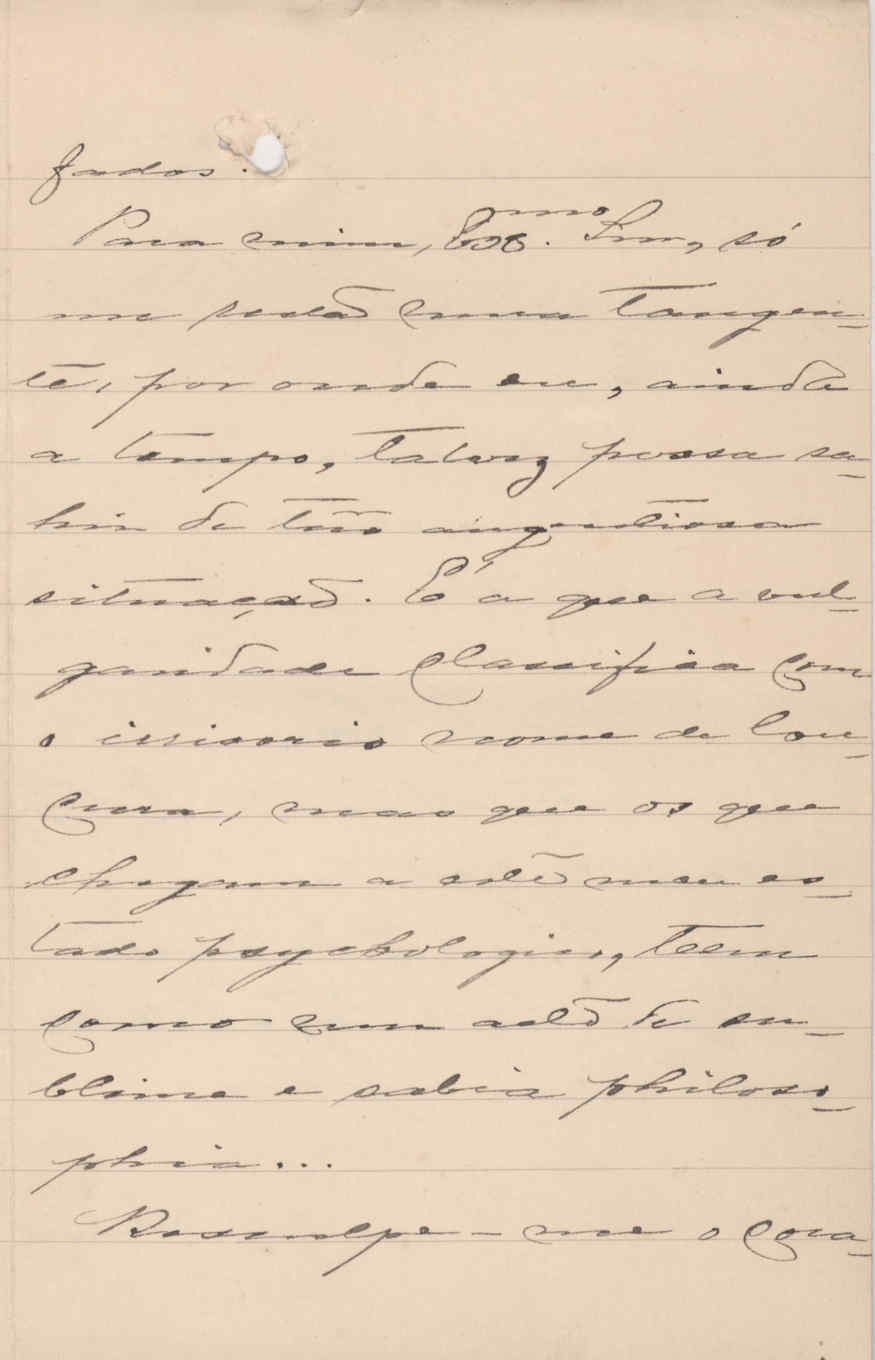 fados.
Para mim, Exmo. Snr, só
me resta uma tangen-
te, por onde eu, ainda
a tempo, talvez possa sa-
hir de tão angustiosa
situação. É a que a vul-
garidade classifica com
o irrisorio nome de lou-
cura, mas que os que
chegam a este meu es-
tado psychologico, teem
como um acto de su-
blime e sabia philoso-
phia...
Desculpe-me o cora-